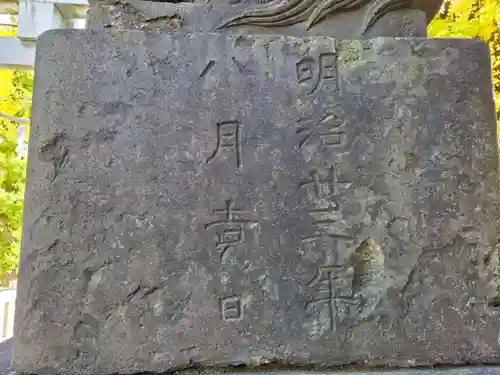 明治廿三年
八月吉日